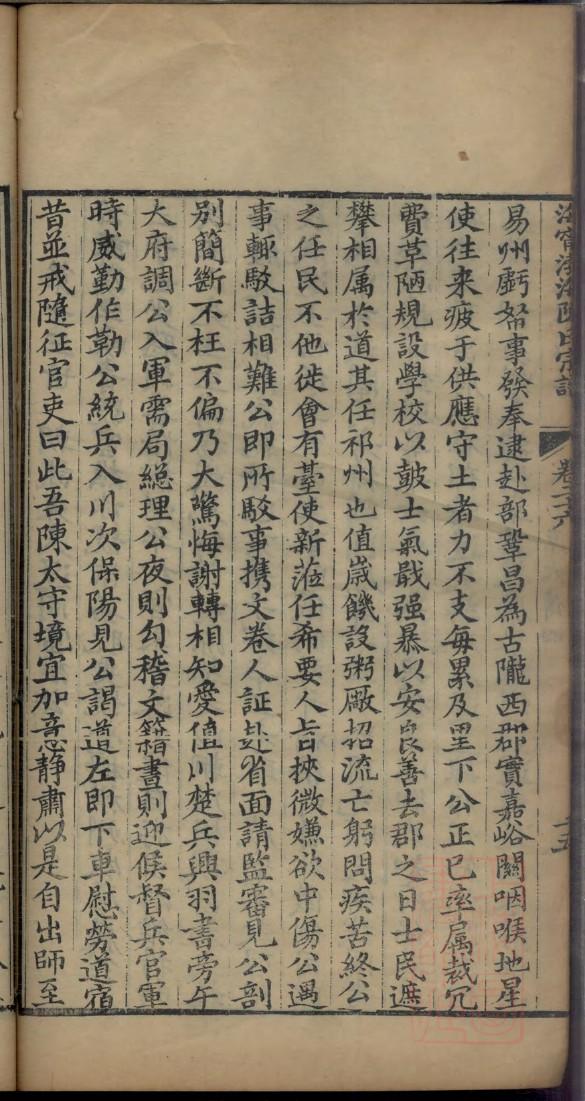 海寧渤海陳氏宗譜
卷二六
十五
易州虧帑事發奉逮赴部鞏昌為古隴西郡實嘉峪關咽喉地星
使往来疲于供應守土者力不支每累及里下公正已率属裁冗
費草陋規設學校以鼓士氣戢强暴以安良善去郡之日士民遮
攀相属於道其任祁州也值歲饑設粥廠招流亡躬問疾苦終公
之任民不他徙會有臺使新蒞任希要人旨挾微嫌欲中傷公遇
事輒駮詰相難公即所駮事携文卷人証赴省面請監審見公剖
别簡斷不枉不偏乃大驚悔謝轉相知愛值川楚兵興羽書旁午
大府調公入軍需局総理公夜則勾稽文籍晝則迎候督兵官軍
時威勤作勒公統兵入川次保陽見公謁道左即下車慰勞道宿
昔並戒隨征官吏曰此吾陳太守境宜加意静肅以是自出師至